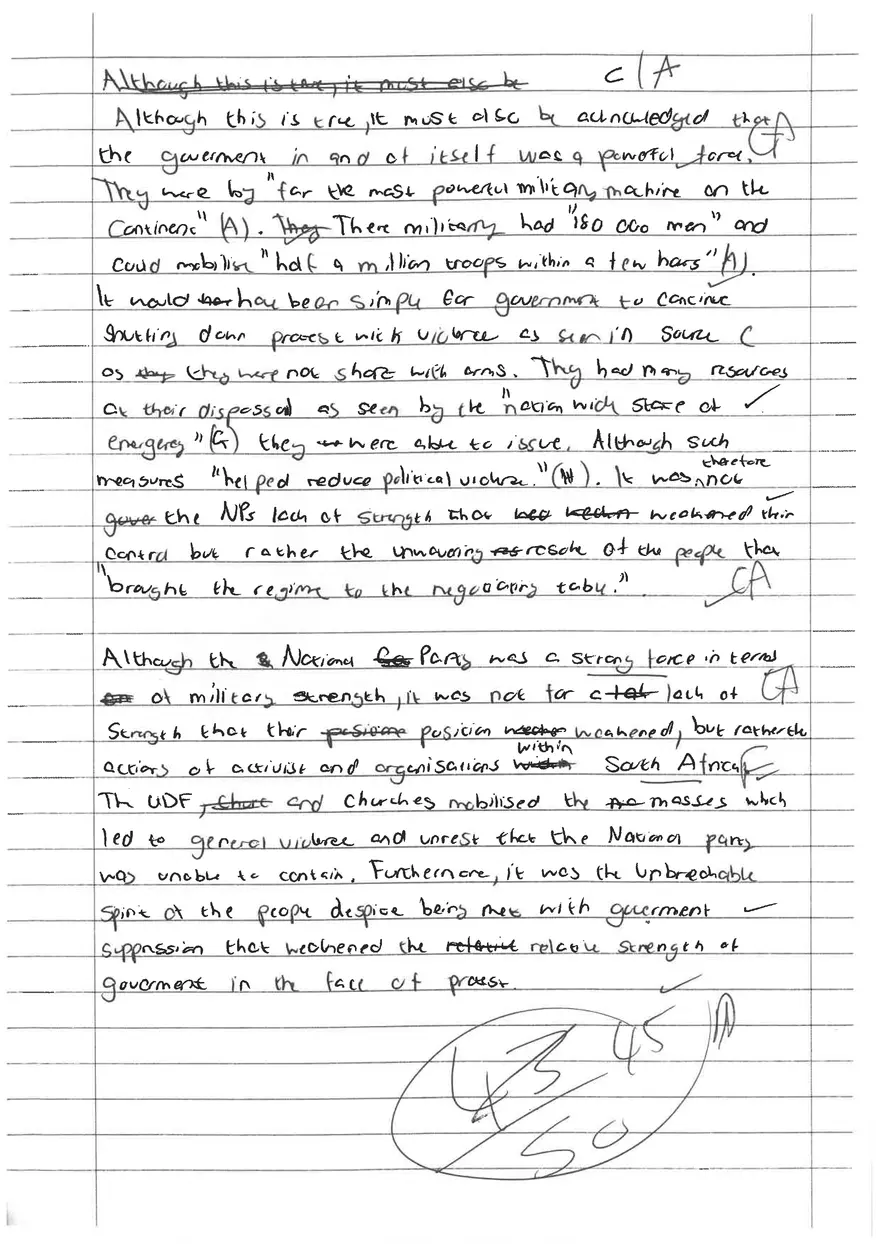 Although this is true, it must also be
C/A
Although this is true, it must also be acknowledged that
the goverment in and of itself was a powerful force.
They were by "far the most powerful military machine on the
Continent" (A). They There military had "180 000 men" and
could mobilise "half a million troops within a few hours" (A).
It would have been simple for government to continue
shutting down protest with violence as seen in Source C
as they they were not short with arms. They had many resources
at their disposal as seen by the "nation wide state of
emergency" (G) they were able to issue. Although such
measures "helped reduce political violence." (N). It was therefore not
gover the NPs lack of strength that weakened their
control but rather the unwavering resolve of the people that
"brought the regime to the negotiating table."
CA
Although the National Go Party was a strong force in terms
of military strength, it was not for a lack of
Strength that their position weakened, but rather the
actions of activist and organisations within South Africa.
The UDF, and Churches mobilised the masses which
led to general violence and unrest that the National party
was unable to contain. Furthermore, it was the Unbreakable
spirit of the people despite being met with goverment
suppression that weakened the relative strength of
goverment in the face of protest.
43 45
50